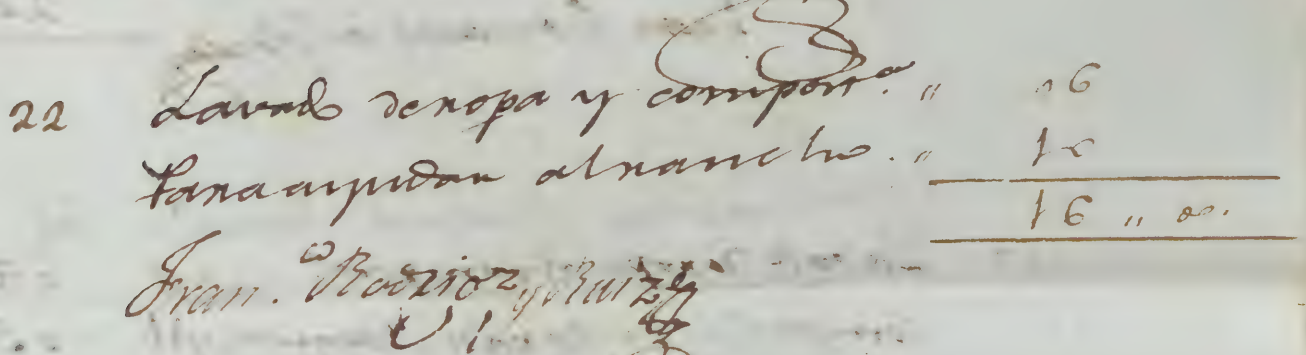 22 Lavado de ropa y compost.ª „ „ 6
Para ayudar al rancho. „ 10
16 „ „
Fran.co Rodrigz y Ruiz